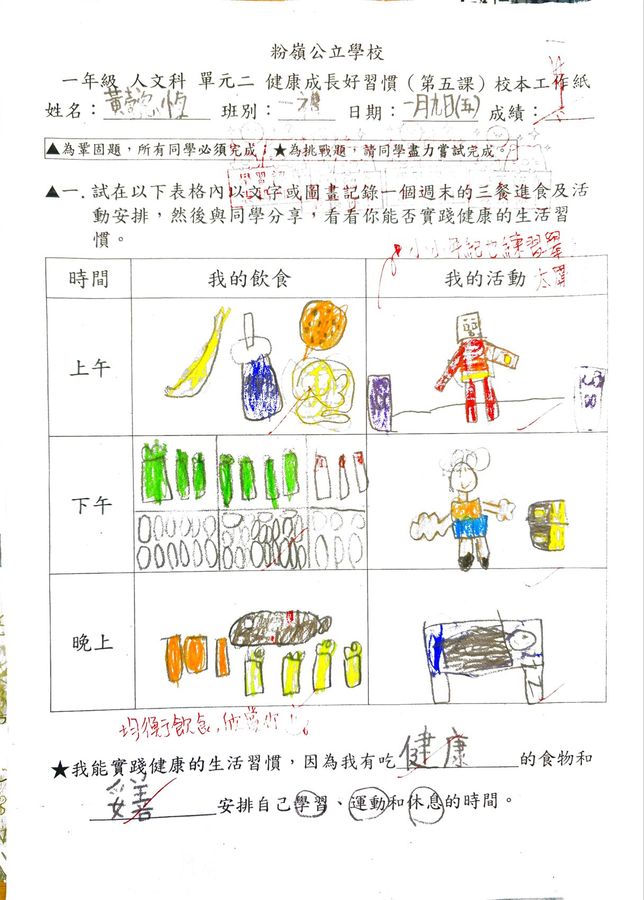 粉嶺公立學校
一年級 人文科 單元二 健康成長好習慣（第五課）校本工作紙
姓名：黃 恆 班別：一 日期：一月九日(五) 成績：
▲為鞏固題，所有同學必須完成；★為挑戰題，請同學盡力嘗試完成。
▲一．試在以下表格內以文字或圖畫記錄一個週末的三餐進食及活
動安排，然後與同學分享，看看你能否實踐健康的生活習
慣。
小小年紀也練習舉
時間 我的飲食 我的活動
上午
下午
晚上
均衡飲食
★我能實踐健康的生活習慣，因為我有吃健康的食物和
妥善安排自己學習、運動和休息的時間。